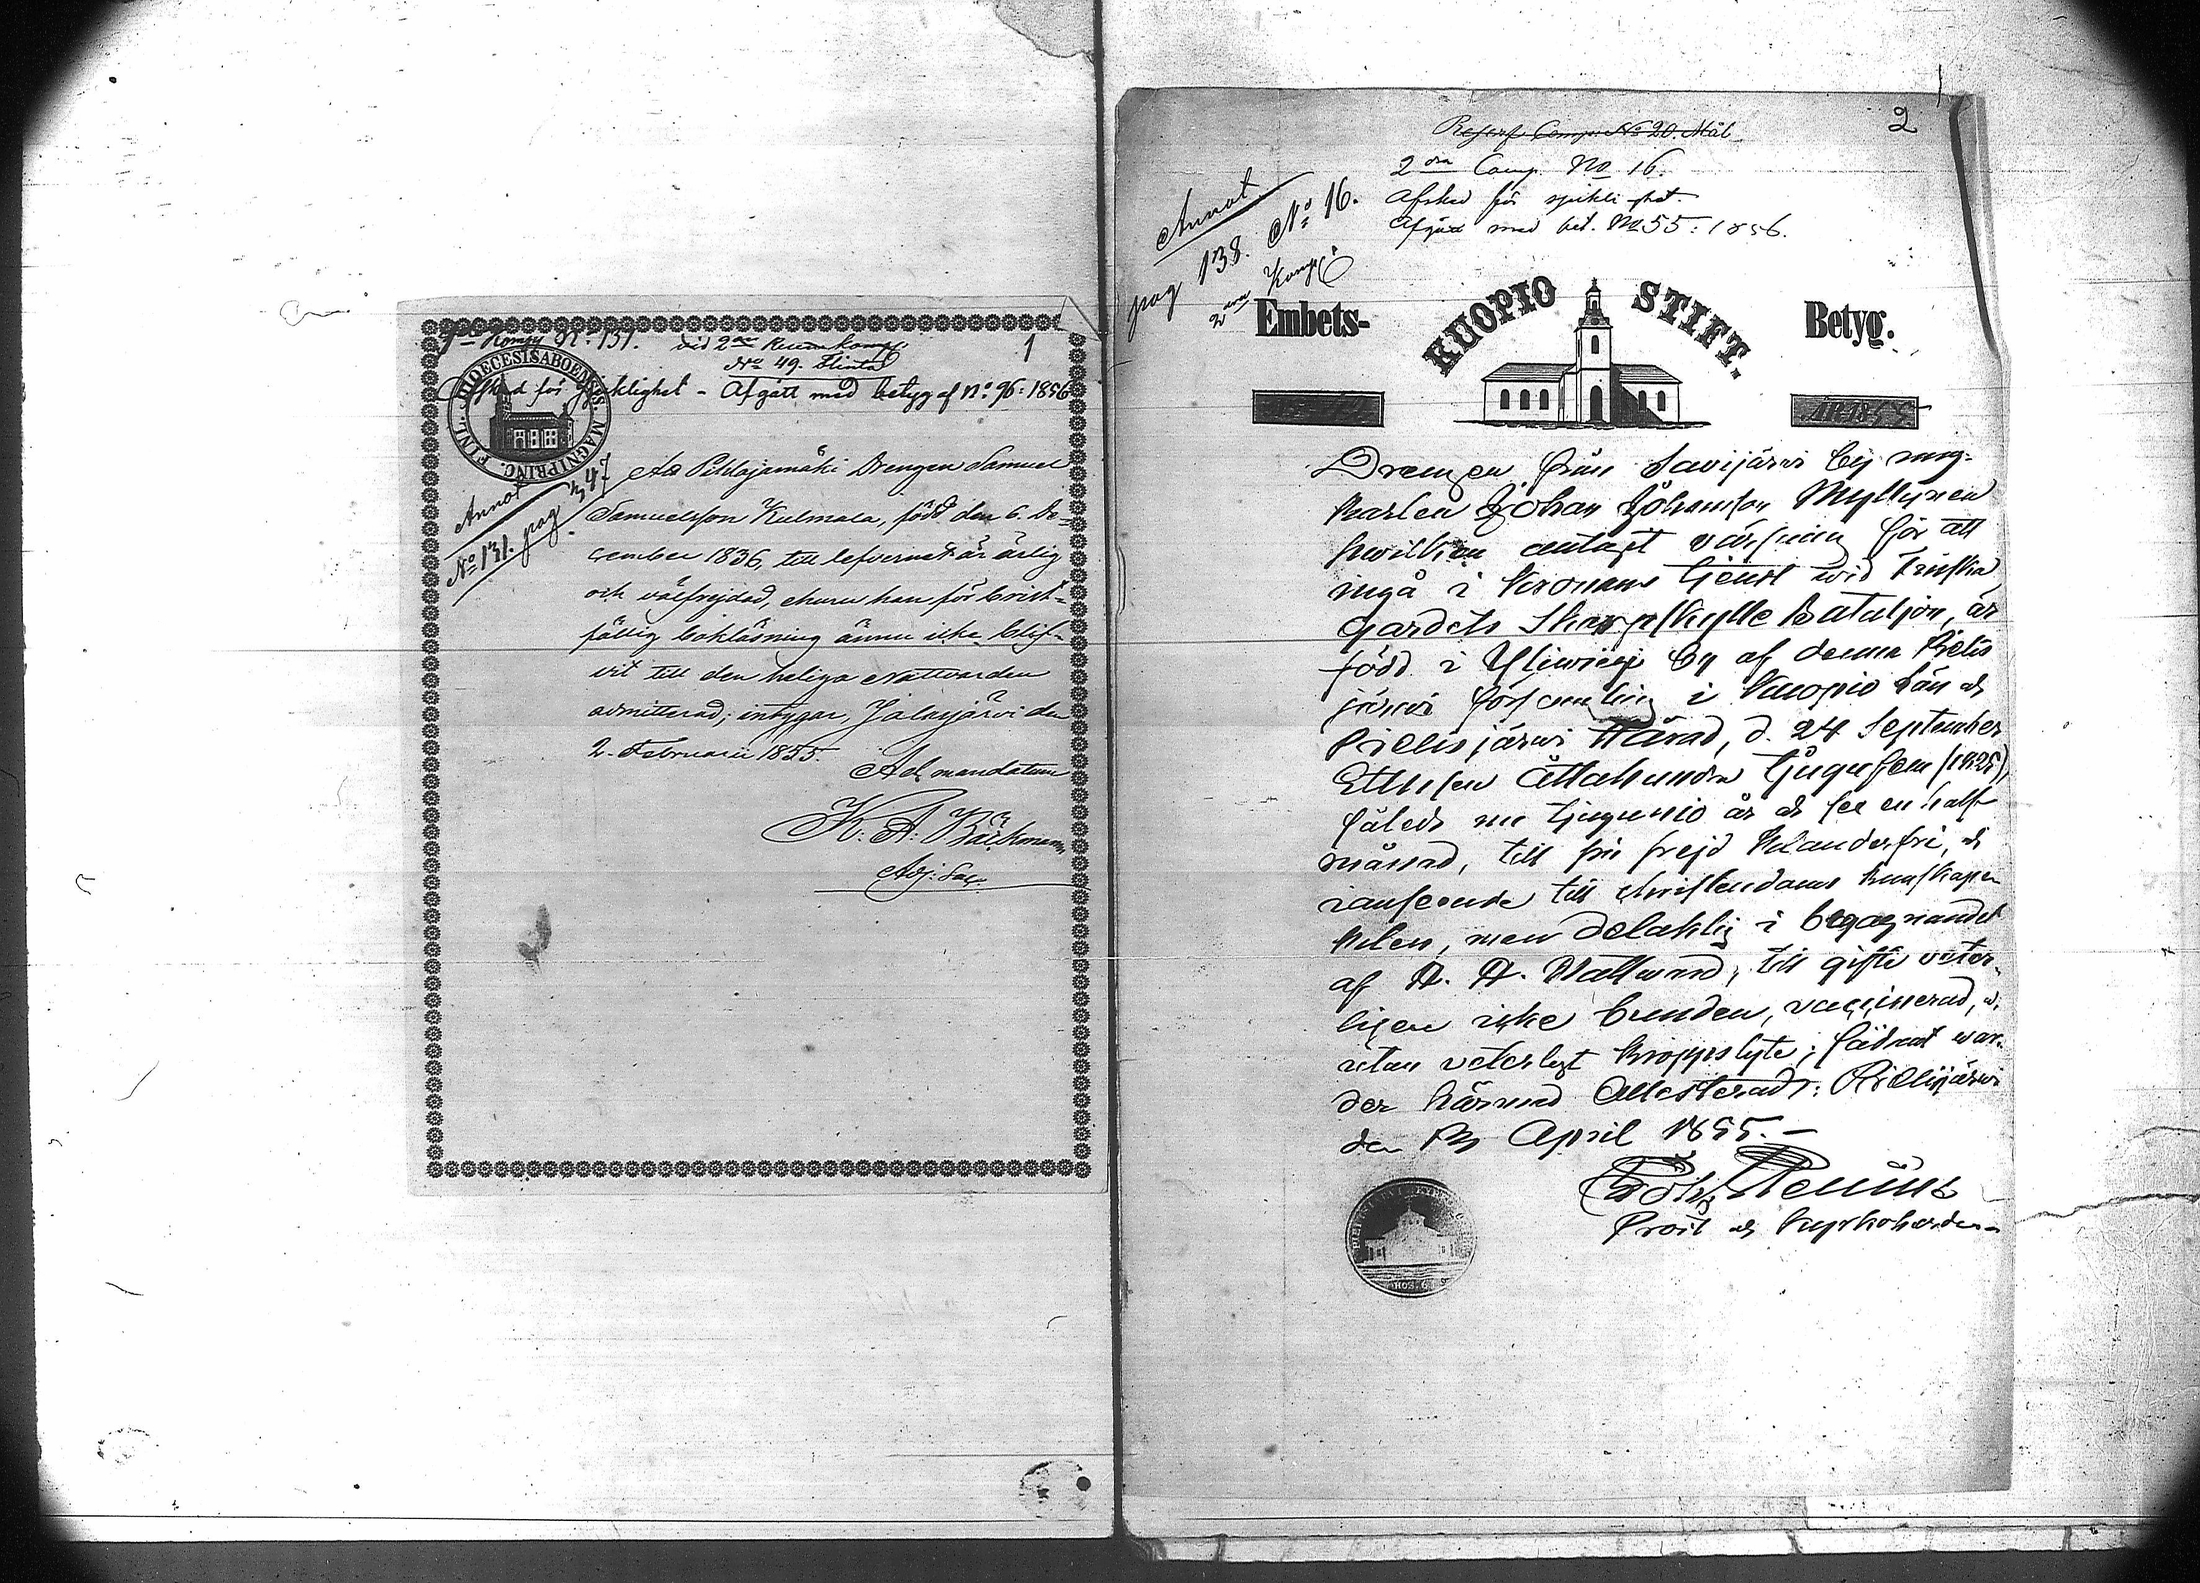 1
1sta Kompg No. 131. vid 2dra Reserv komp.
No 49. Flinta
Afsked för sjuklighet - Afgått med betyg af No. 96: 1856
DIOECESIS ABOENSIS. MAGNI PRINC. FINL.
Annot
No 131. pag 347
Att Pihlajamäki Drengen Samuel
Samuelsson Kulmala, född den 6. De=
cember 1836, till lefvernet är ärlig
och välfrejdad, churu han för brist=
fällig bokläsning ännu icke blif=
vit till den heliga Nattvarden
admitterad; intygar, Jalasjärvi den
2. Februarii 1855.
Ad mandatum
K. A. Bäckman,
Adj. Sac.
2
Reserf Comp: No 20. Mål
2dra Comp. No 16.
Afsked för sjuklighet.
Afgått med bet. No 55: 1856.
Annot
pag 138. No 16.
2dra Komp.
Embets- KUOPIO STIFT. Betyg.
AR 1855
Drengen från Savijärvi by ung-
karlen Johan Johansson Myllynen
hvilken antagit värfning för att
ingå i Kronans tjenst wid Finska
Gardets Skarpskytte Bataljon, är
född i by af denna Pielis
järvi församling i Kuopio Län och
Pielisjärvi Härad, d. 24 September
Ettusen Åttahundra tjugufem (1825),
således nu tjugunio år och sex en half
månad, till sin frejd klanderfri, och
till christendoms kunskapen
men delaktig i begagnandet
af H. H. Nattward, till gifte veter-
ligen icke bunden, vaccinerad, o.
utan veterligt kroppslyte; sådant war-
der härmed Attesteradt; Pielisjärvi
den April 1855.-
Prost och Kyrkoherde